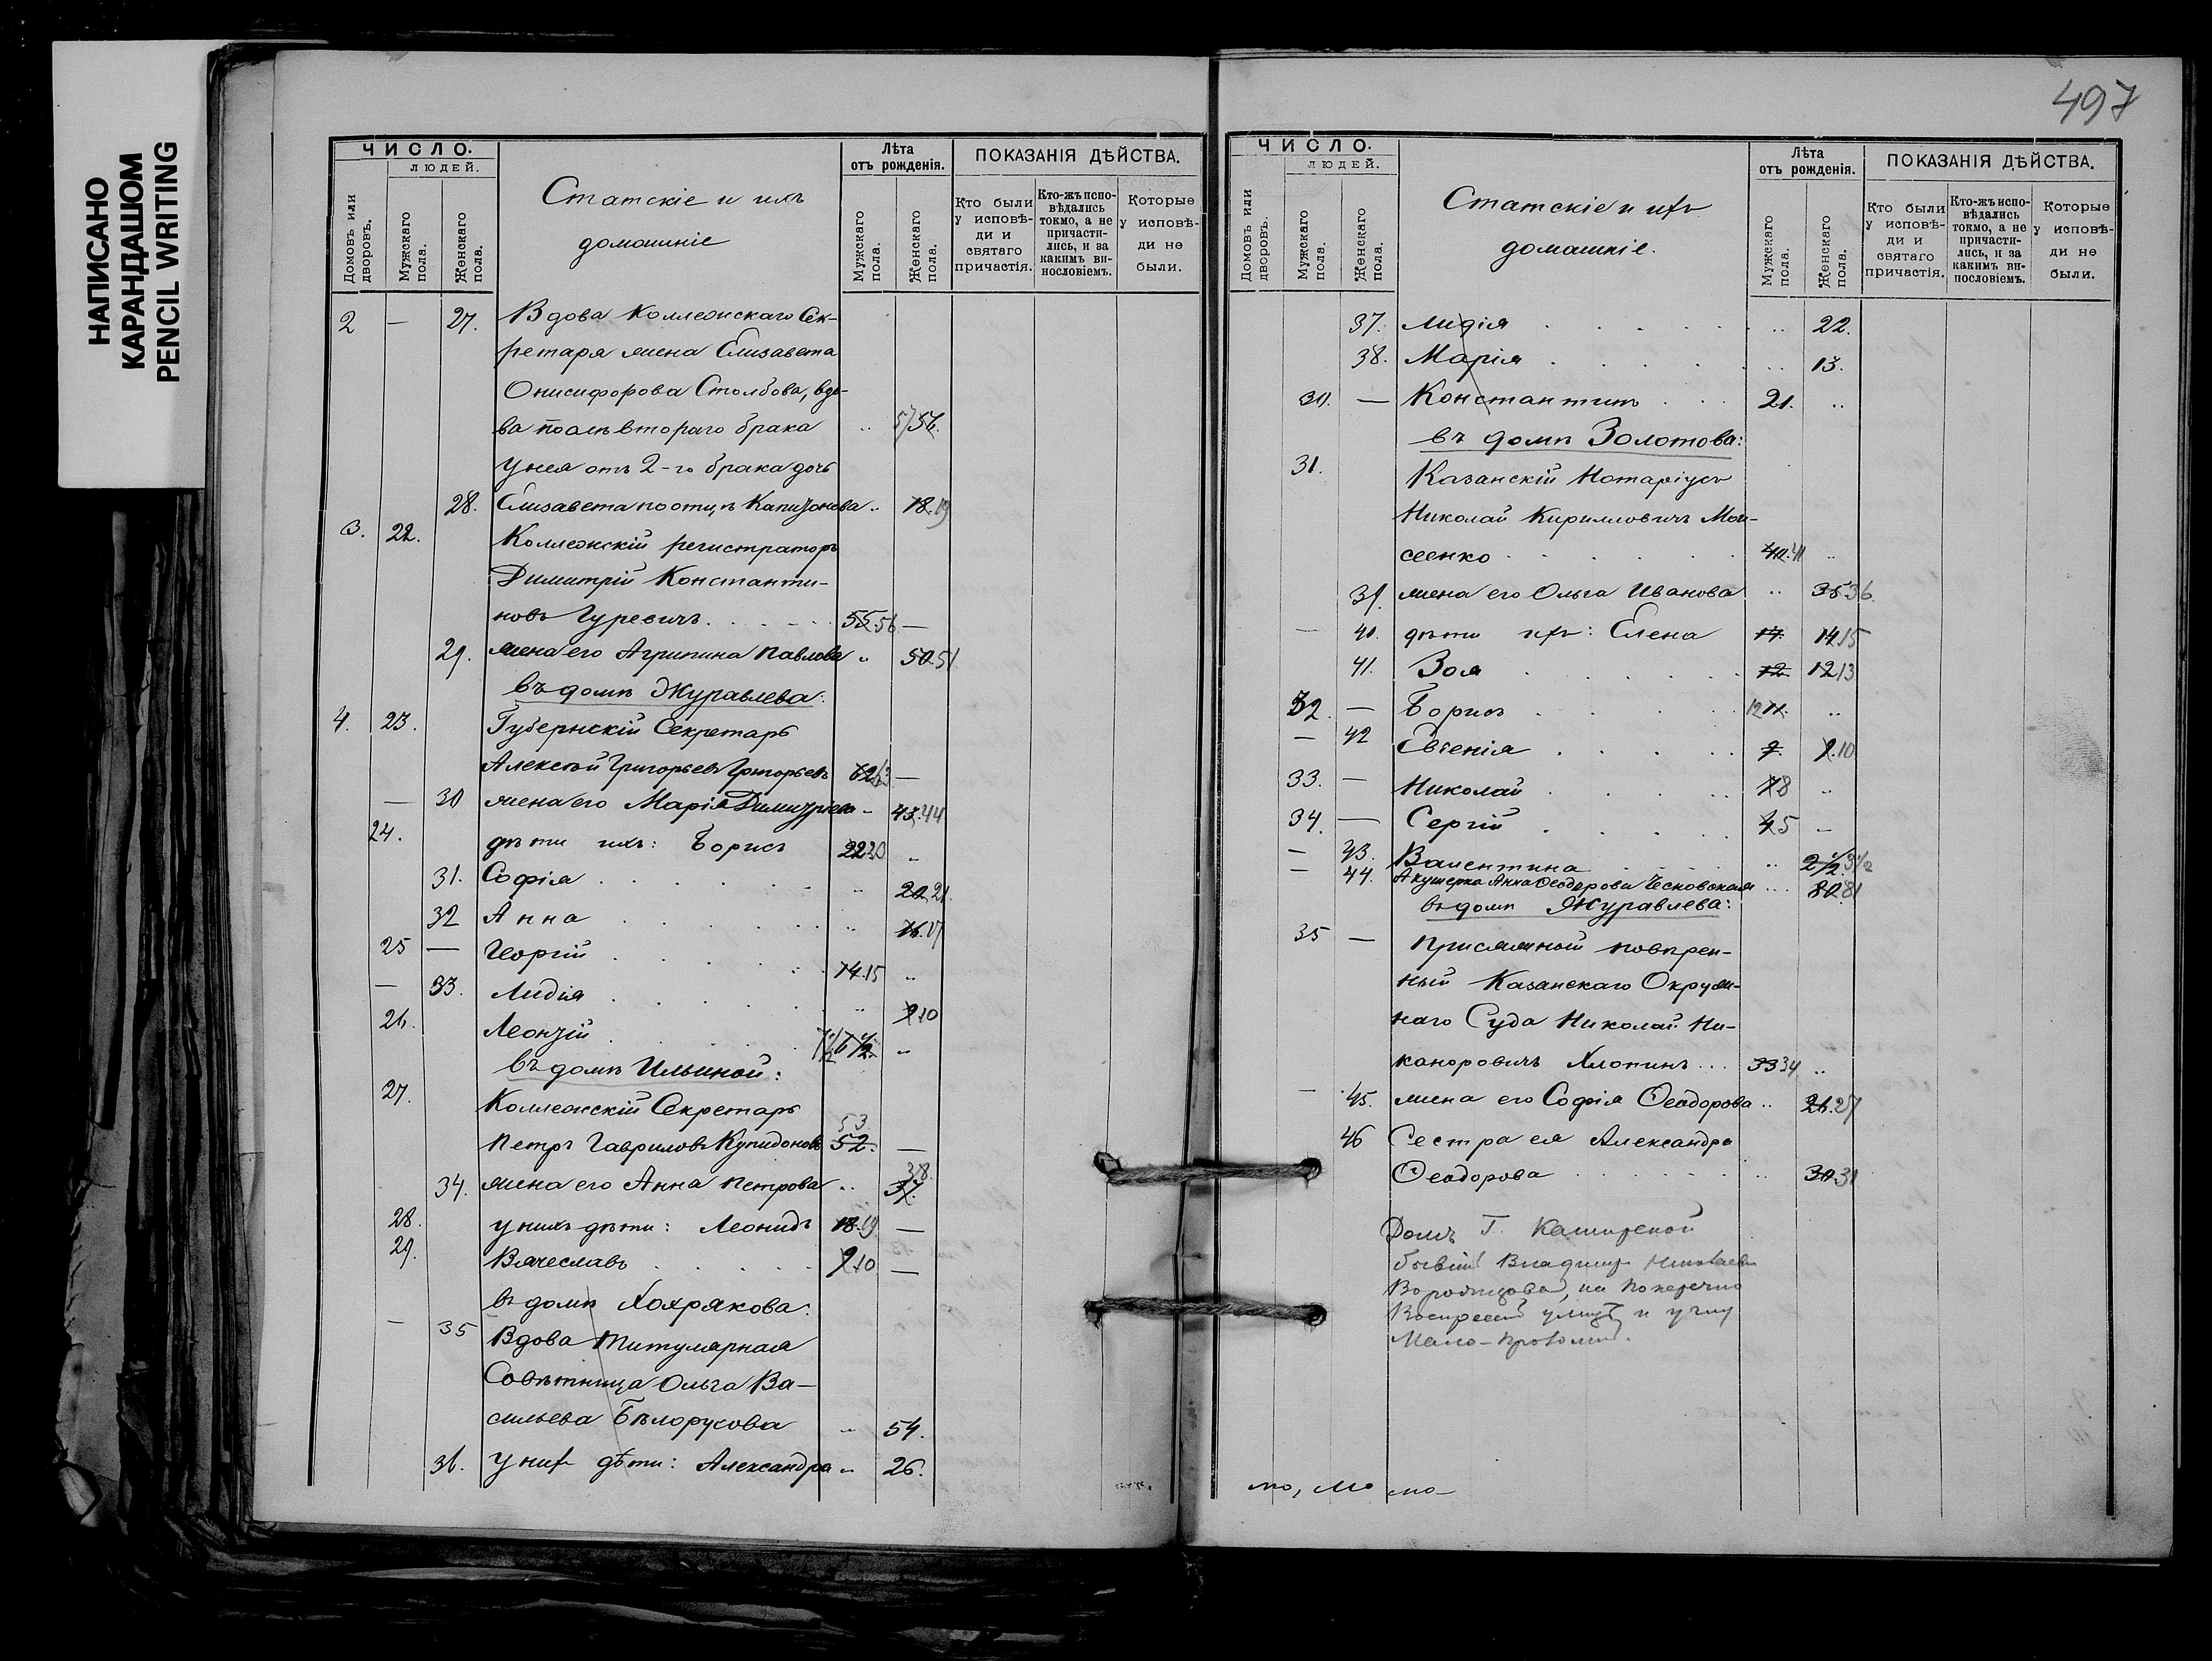 НАПИСАНО
КАРАНДАШОМ
PENCIL WRITING
ЧИСЛО.
ЛЮДЕЙ.
Домовъ или дворовъ.
Мужскаго пола.
Женскаго пола.
Статскіе и ихъ
домашніе
Лѣта
отъ рожденія.
Мужскаго пола.
Женскаго пола.
ПОКАЗАНІЯ ДѢЙСТВА.
Кто были у исповѣ-ди и святаго причастія.
Кто-жъ испо-вѣдались токмо, а не причасти-лись, и за какимъ ви-нословіемъ.
Которые у исповѣ-ди не были.
2 — 27. Вдова Коллежскаго Сек-
ретаря жена Елизавета
Онисифорова Столбова, вдо-
ва послѣ втораго брака .. 57 56.
У нея отъ 2-го брака дочь
28. Елизавета по отцѣ Капитонова .. 18. 19
3. 22. Коллежскій регистраторъ
Димитрій Константи-
новъ Гуревичъ 55 56 —
29. жена его Агрипина Павлова .. 50. 51
въ домѣ Журавлева:
4. 23. Губернскій Секретарь
Алексѣй Григорьевъ Григорьевъ 62 63 —
— 30 жена его Марія Димитріева .. 43. 44
24. дѣти ихъ: Борисъ 22 23 ..
31. Софія .. 20. 21.
32 Анна .. 16. 17
25 — Георгій 14. 15 ..
— 33. Лидія .. 9. 10
26. Леонтій 7 1/2 6 1/2. ..
въ домѣ Ильиной:
27. Коллежскій Секретарь
Петръ Гавриловъ Купидоновъ 53 52. —
34. жена его Анна Петрова .. 38. 37.
28. у нихъ дѣти: Леонидъ 18. 19 —
29. Вячеславъ 9. 10 —
въ домѣ Хохрякова:
— 35 Вдова Титулярная
Совѣтница Ольга Ва-
сильева Бѣлорусова .. 54.
36. У нихъ дѣти: Александра .. 26.
497
ЧИСЛО.
ЛЮДЕЙ.
Домовъ или дворовъ.
Мужскаго пола.
Женскаго пола.
Статскіе и ихъ
домашніе.
Лѣта
отъ рожденія.
Мужскаго пола.
Женскаго пола.
ПОКАЗАНІЯ ДѢЙСТВА.
Кто были у исповѣ-ди и святаго причастія.
Кто-жъ испо-вѣдались токмо, а не причасти-лись, и за какимъ ви-нословіемъ.
Которые у исповѣ-ди не были.
37. Лидія .. 22.
38. Марія .. 13.
30. — Константинъ 21. ..
въ домѣ Золотова:
31. Казанскій Нотаріусъ
Николай Кирилловичъ Мои-
сеенко 40. 41 ..
39. жена его Ольга Иванова .. 35 36.
— 40. дѣти ихъ: Елена 14. 14 15
41. Зоя 12 12 13
32. — Борисъ 12 11. ..
— 42 Евгенія 9. 9. 10
33. — Николай 7 8 ..
34. — Сергій 4 5 —
— 43. Валентина .. 2 1/2. 3 1/2
— 44. Акушерка Анна Ѳеодорова Чесновская ... 80. 81
въ домѣ Журавлева:
35 — Присяжной повѣрен-
ный Казанскаго Окруж-
наго Суда Николай Ни-
каноровичъ Хлопинъ ... 33 34 ..
— 45. жена его Софія Ѳеодорова .. 26. 27
46 Сестра ея Александра
Ѳеодорова .. 30. 31
Домъ Г.
бывшій Владимір Николаев
на поперечно
улицѣ и углу
Мало-